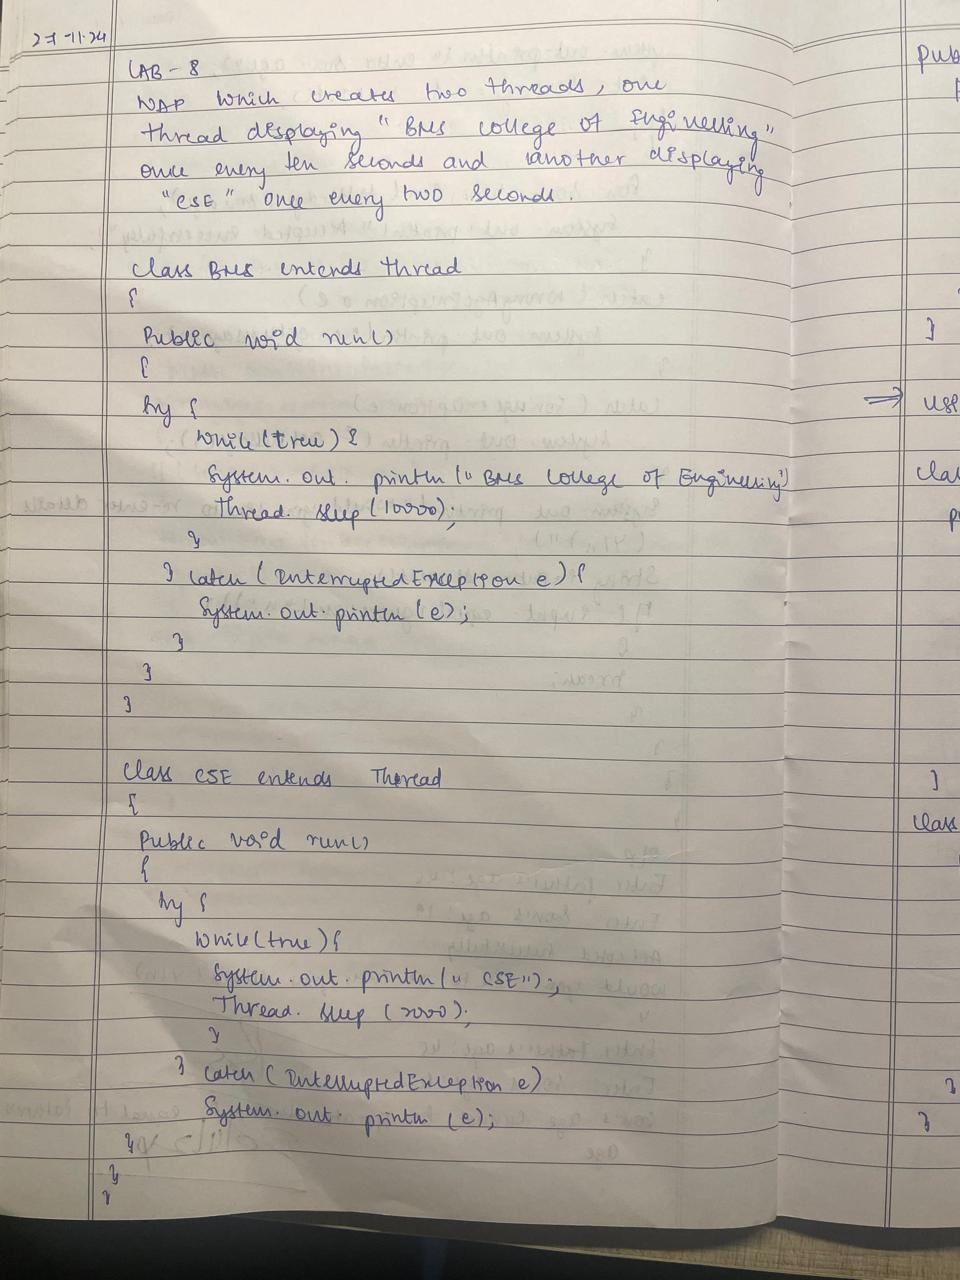 27-11-24
LAB - 8
WAP which creates two threads, one
thread displaying "BMS college of Engineering"
once every ten seconds and another displaying
"CSE" once every two seconds.
class BMS extends thread
{
Public void run()
{
try {
while(true) {
System.out.println("BMS College of Engineering")
Thread.sleep(10000);
}
} catch (InterruptedException e) {
System.out.println(e);
}
}
}
class CSE extends Thread
{
Public void run()
{
try {
while(true){
System.out.println("CSE");
Thread.sleep(2000);
}
} catch (InterruptedException e)
System.out.println(e);
}
}
}
pub
}
⇒ use
clas
p
}
class
}
}